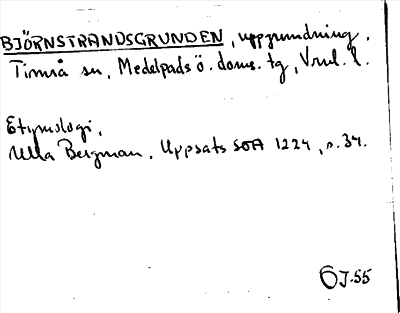 BJÖRNSTRANDSGRUNDEN, uppgrundning,
Timrå sn, Medelpads ö. doms. tg, Vnl. l.
Etymologi,
Ulla Bergman, Uppsats SOA 1224, s. 34.